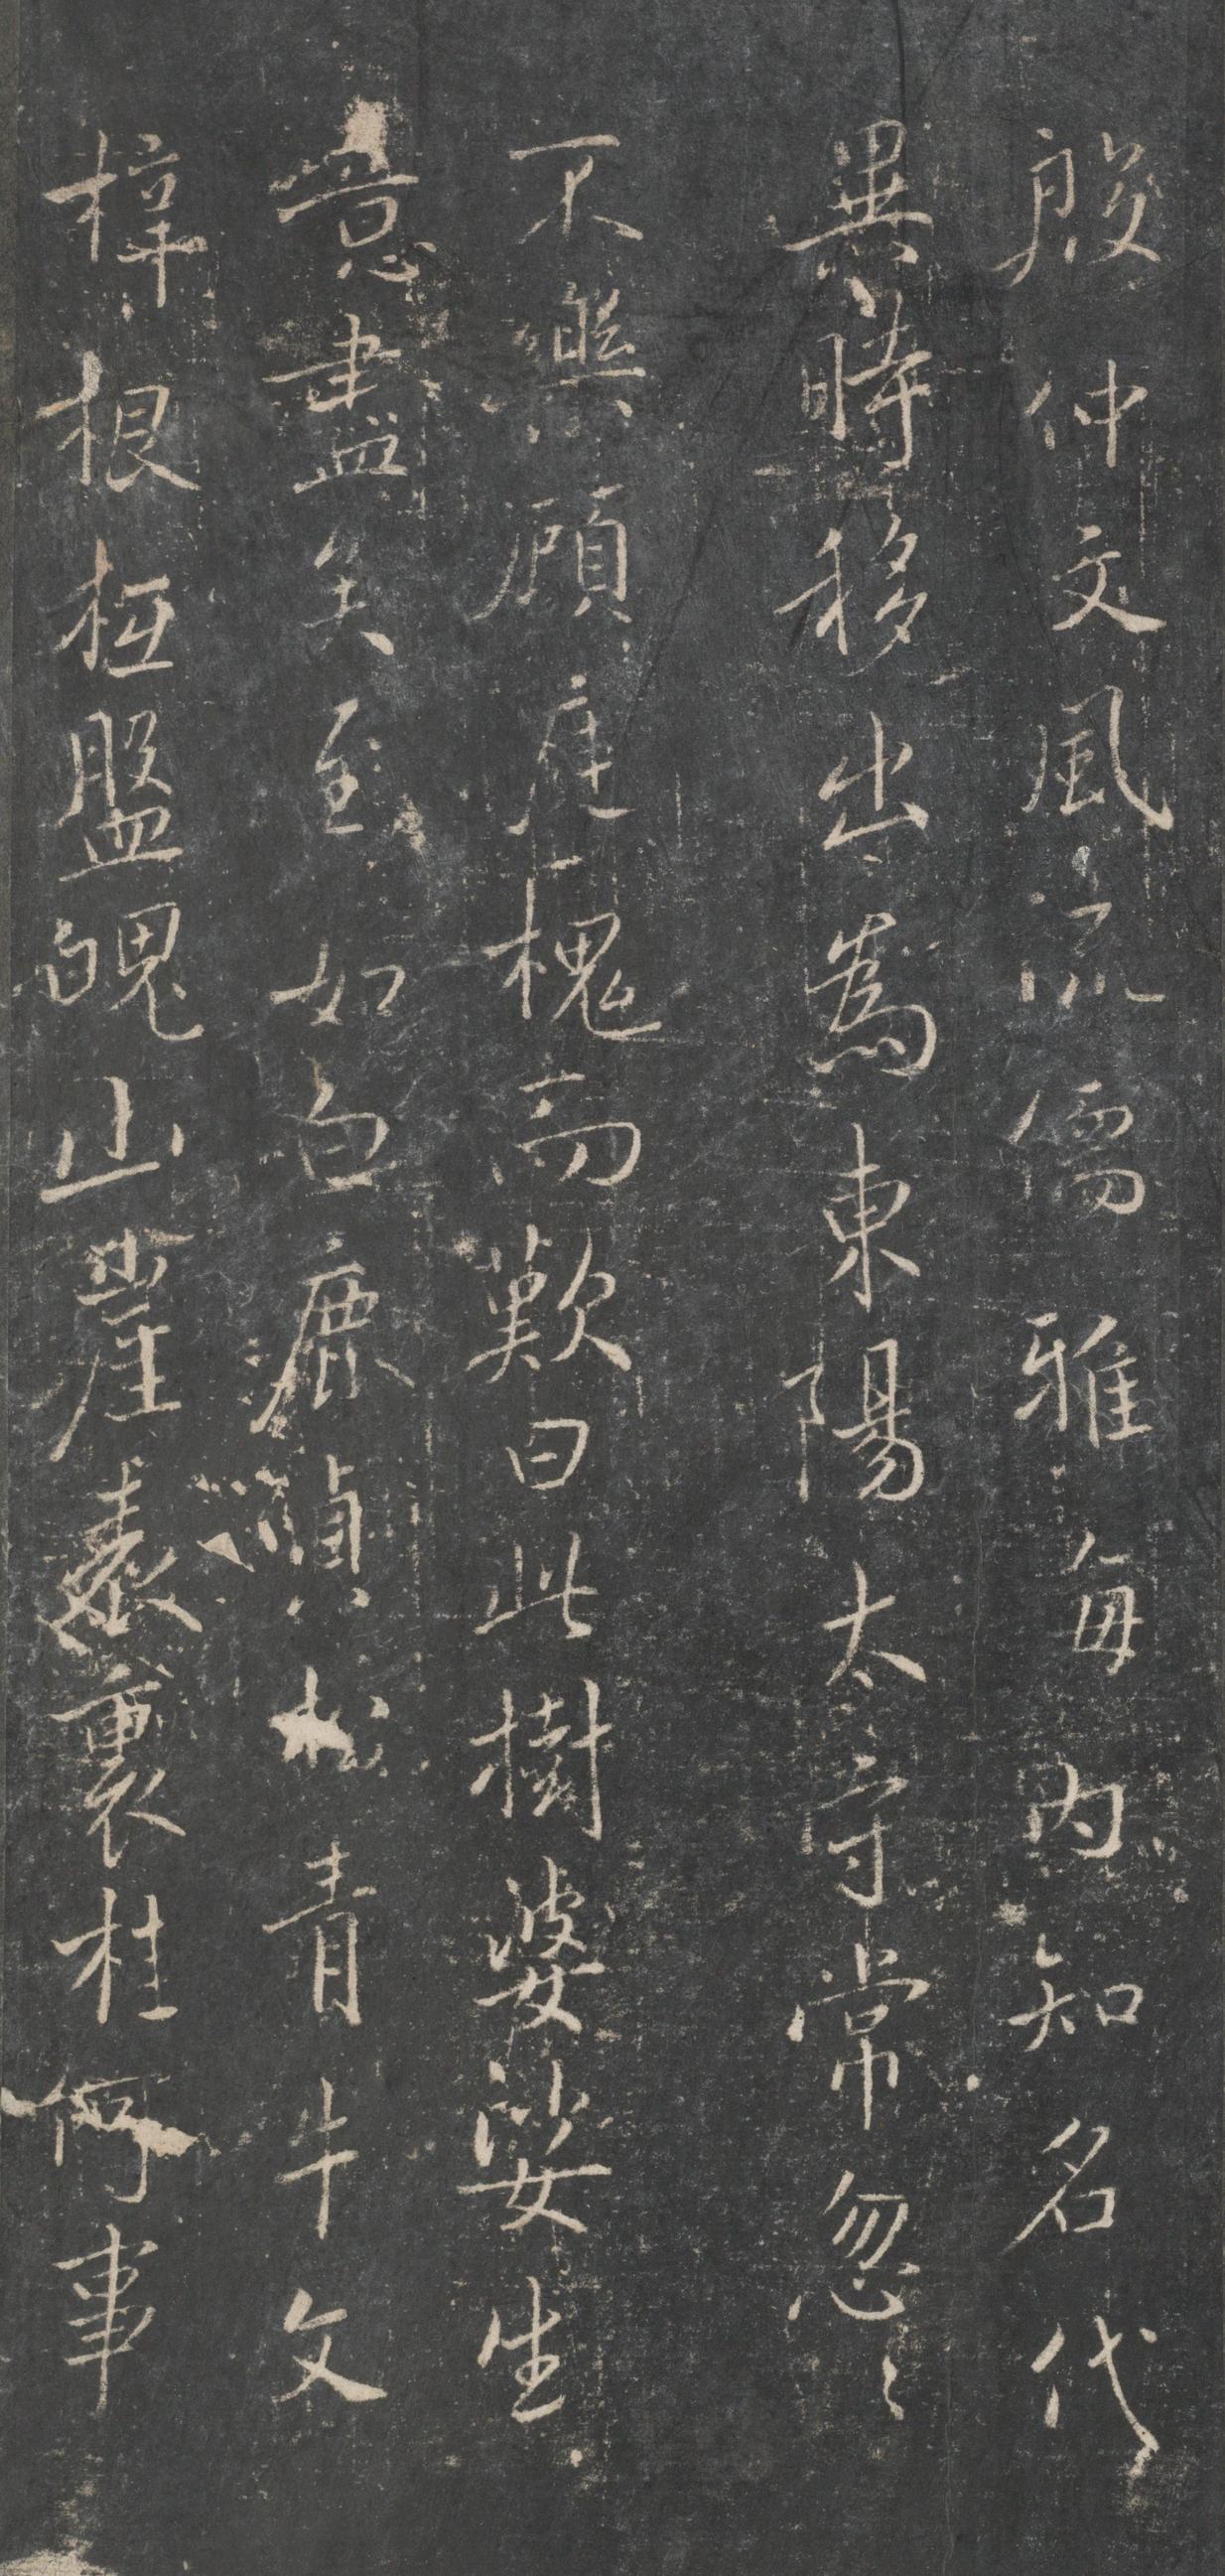 殷仲文風流儒雅海內知名代
異時移出為東陽太守常忽〻
不樂顧庭槐而歎曰此樹婆娑生
意盡矣至如白鹿貞松青牛文
梓根柢盤魄山崖表裏桂何事